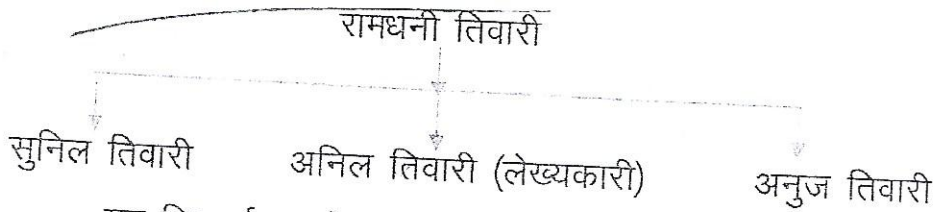 रामधनी तिवारी
सुनिल तिवारी अनिल तिवारी (लेख्यकारी) अनुज तिवारी